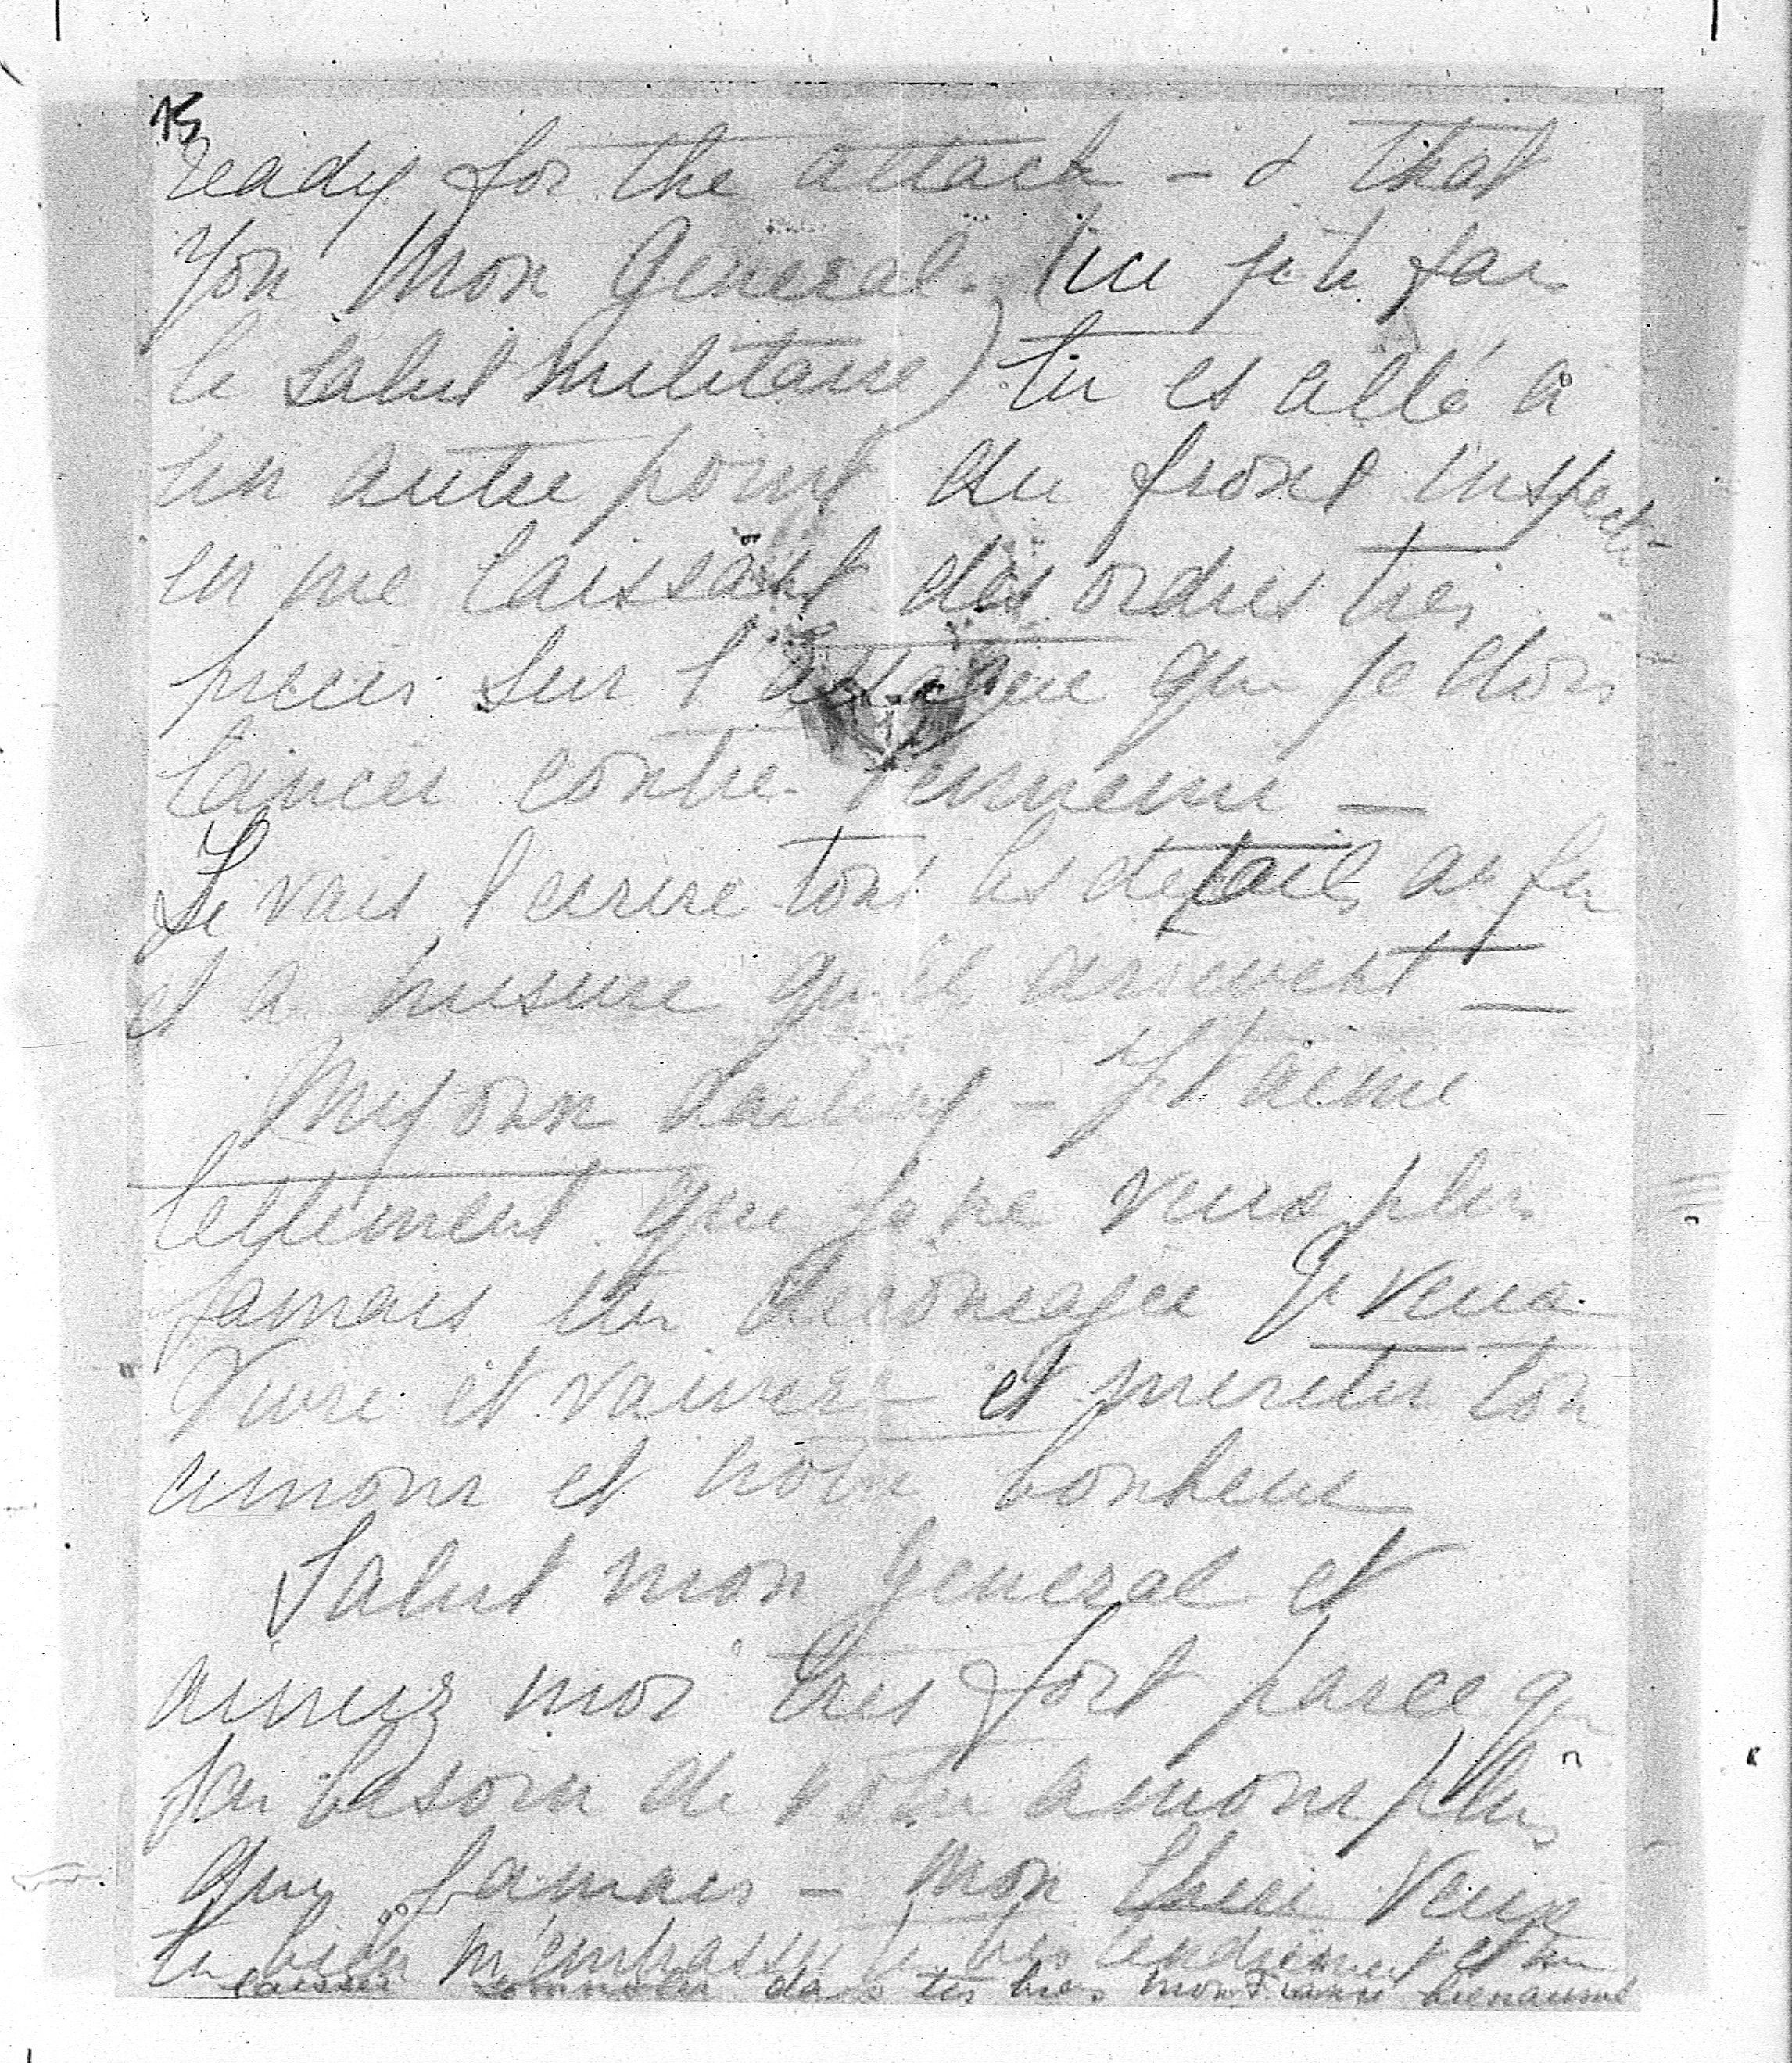 15
ready for the attack – & that
you Mon General. (ici je te fais
le salut militaire) tu es allé à
un autre point du front inspecter
en me laissant des ordres tres
precis sur l'attaque que je dois
lancer contre l'ennemi –
Je vais t'ecrire tous les details au fur
et a mesure qu'ils arrivent –
My own darling – Je t'aime
tellement que je ne veux plus
jamais etre decouragee Je veux
vivre et vaincre et meriter ton
amour et notre bonheur
Salut mon General et
aimez moi tres fort parce que
j'ai besoin de votre amour plus
que jamais – Mon Cheri Veux
tu bien m'embrasser tres tendrement et me
laisser dans tes bras mon bienaimé